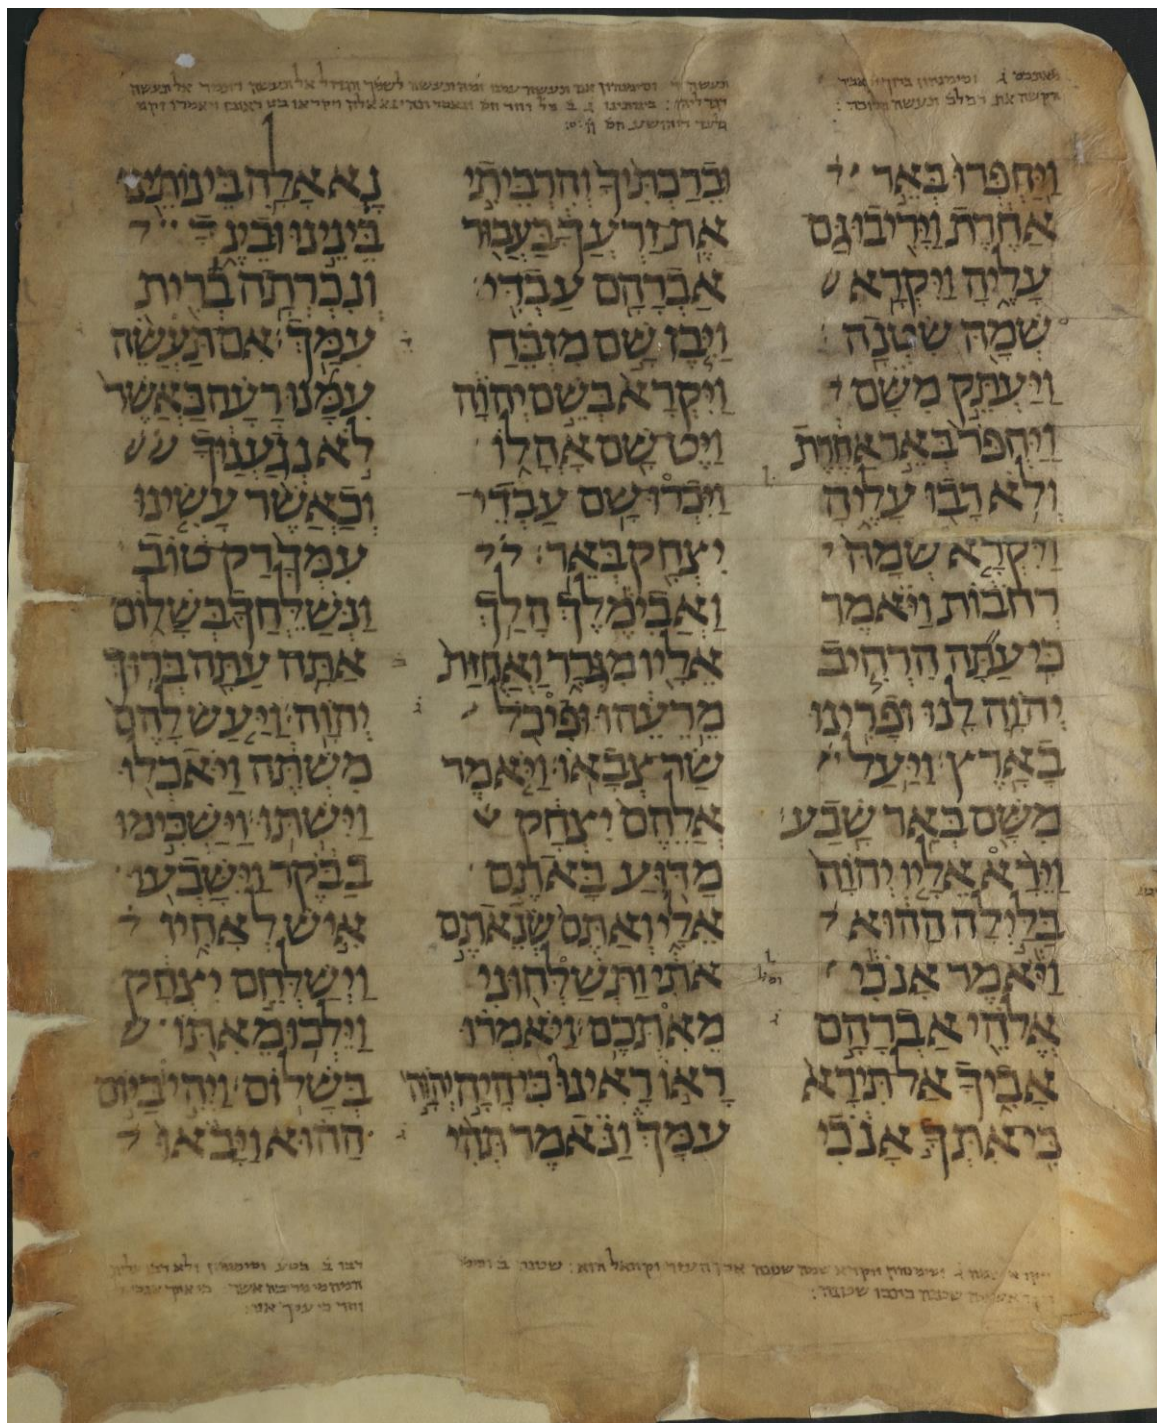 וַיַּחְפְּרוּ בְּאֵר
אַחֶרֶת וַיָּרִיבוּ גַּם
עָלֶיהָ וַיִּקְרָא
שְׁמָהּ שִׂטְנָה׃
וַיַּעְתֵּק מִשָּׁם
וַיַּחְפֹּר בְּאֵר אַחֶרֶת
וְלֹא רָבוּ עָלֶיהָ
וַיִּקְרָא שְׁמָהּ
רְחֹבוֹת וַיֹּאמֶר
כִּי עַתָּה הִרְחִיב
יְהוָה לָנוּ וּפָרִינוּ
בָאָרֶץ׃ וַיַּעַל
מִשָּׁם בְּאֵר שָׁבַע׃
וַיֵּרָא אֵלָיו יְהוָה
בַּלַּיְלָה הַהוּא
וַיֹּאמֶר אָנֹכִי
אֱלֹהֵי אַבְרָהָם
אָבִיךָ אַל תִּירָא
כִּי אִתְּךָ אָנֹכִי
וּבֵרַכְתִּיךָ וְהִרְבֵּיתִי
אֶת זַרְעֲךָ בַּעֲבוּר
אַבְרָהָם עַבְדִּי׃
וַיִּבֶן שָׁם מִזְבֵּחַ
וַיִּקְרָא בְּשֵׁם יְהוָה
וַיֶּט שָׁם אָהֳלוֹ
וַיִּכְרוּ שָׁם עַבְדֵי
יִצְחָק בְּאֵר׃
וַאֲבִימֶלֶךְ הָלַךְ
אֵלָיו מִגְּרָר וַאֲחֻזַּת
מֵרֵעֵהוּ וּפִיכֹל
שַׂר צְבָאוֹ׃ וַיֹּאמֶר
אֲלֵהֶם יִצְחָק
מַדּוּעַ בָּאתֶם
אֵלָי וְאַתֶּם שְׂנֵאתֶם
אֹתִי וַתְּשַׁלְּחוּנִי
מֵאִתְּכֶם׃ וַיֹּאמְרוּ
רָאוֹ רָאִינוּ כִּי הָיָה יְהוָה
עִמָּךְ וַנֹּאמֶר תְּהִי
נָא אָלָה בֵּינוֹתֵינוּ
בֵּינֵינוּ וּבֵינֶךָ
וְנִכְרְתָה בְרִית
עִמָּךְ׃ אִם תַּעֲשֵׂה
עִמָּנוּ רָעָה כַּאֲשֶׁר
לֹא נְגַעֲנוּךָ
וְכַאֲשֶׁר עָשִׂינוּ
עִמְּךָ רַק טוֹב
וַנְּשַׁלֵּחֲךָ בְּשָׁלוֹם
אַתָּה עַתָּה בְּרוּךְ
יְהוָה׃ וַיַּעַשׂ לָהֶם
מִשְׁתֶּה וַיֹּאכְלוּ
וַיִּשְׁתּוּ׃ וַיַּשְׁכִּימוּ
בַבֹּקֶר וַיִּשָּׁבְעוּ
אִישׁ לְאָחִיו
וַיְשַׁלְּחֵם יִצְחָק
וַיֵּלְכוּ מֵאִתּוֹ
בְּשָׁלוֹם׃ וַיְהִי בַּיּוֹם
הַהוּא וַיָּבֹאוּ